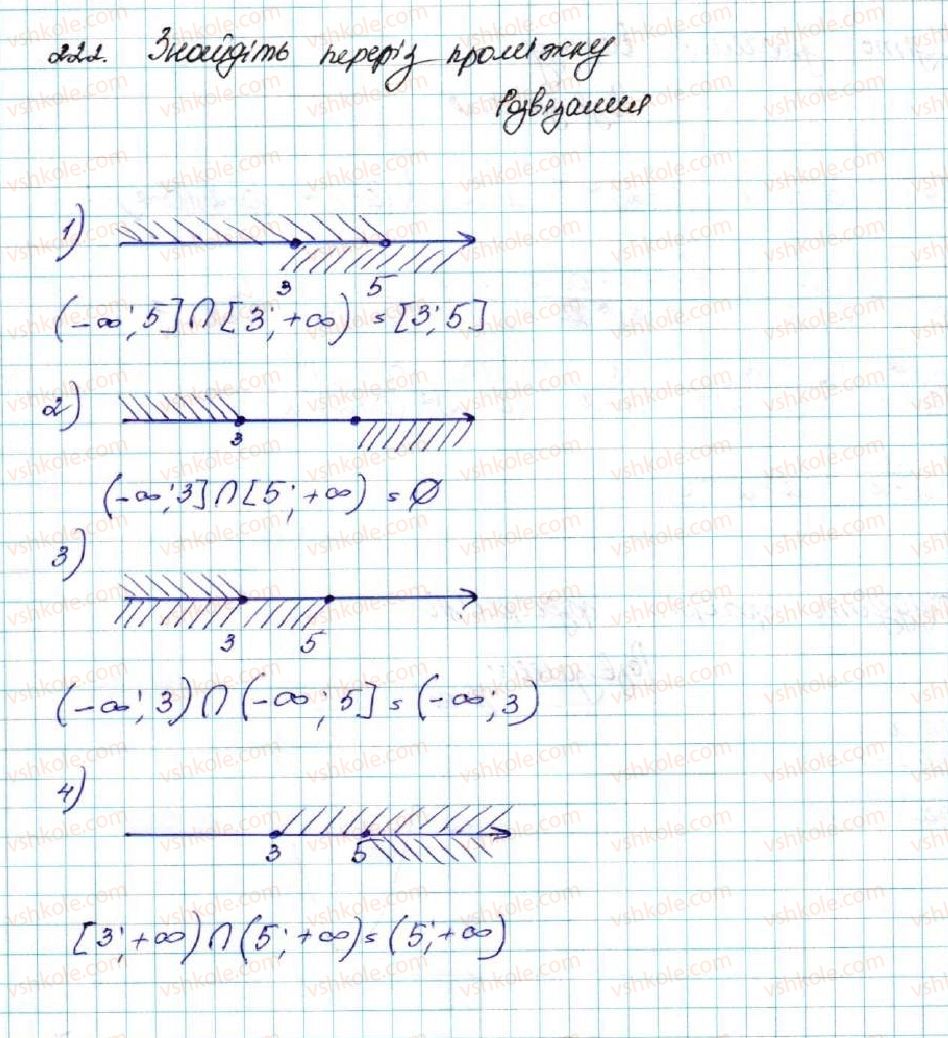 222. Знайдіть переріз проміжку
Розв'язання
1)
3 5
(-∞; 5] ∩ [3; +∞) = [3; 5]
2)
3
(-∞; 3] ∩ [5; +∞) = ∅
3)
3 5
(-∞; 3) ∩ (-∞; 5] = (-∞; 3)
4)
3 5
[3; +∞) ∩ (5; +∞) = (5; +∞)